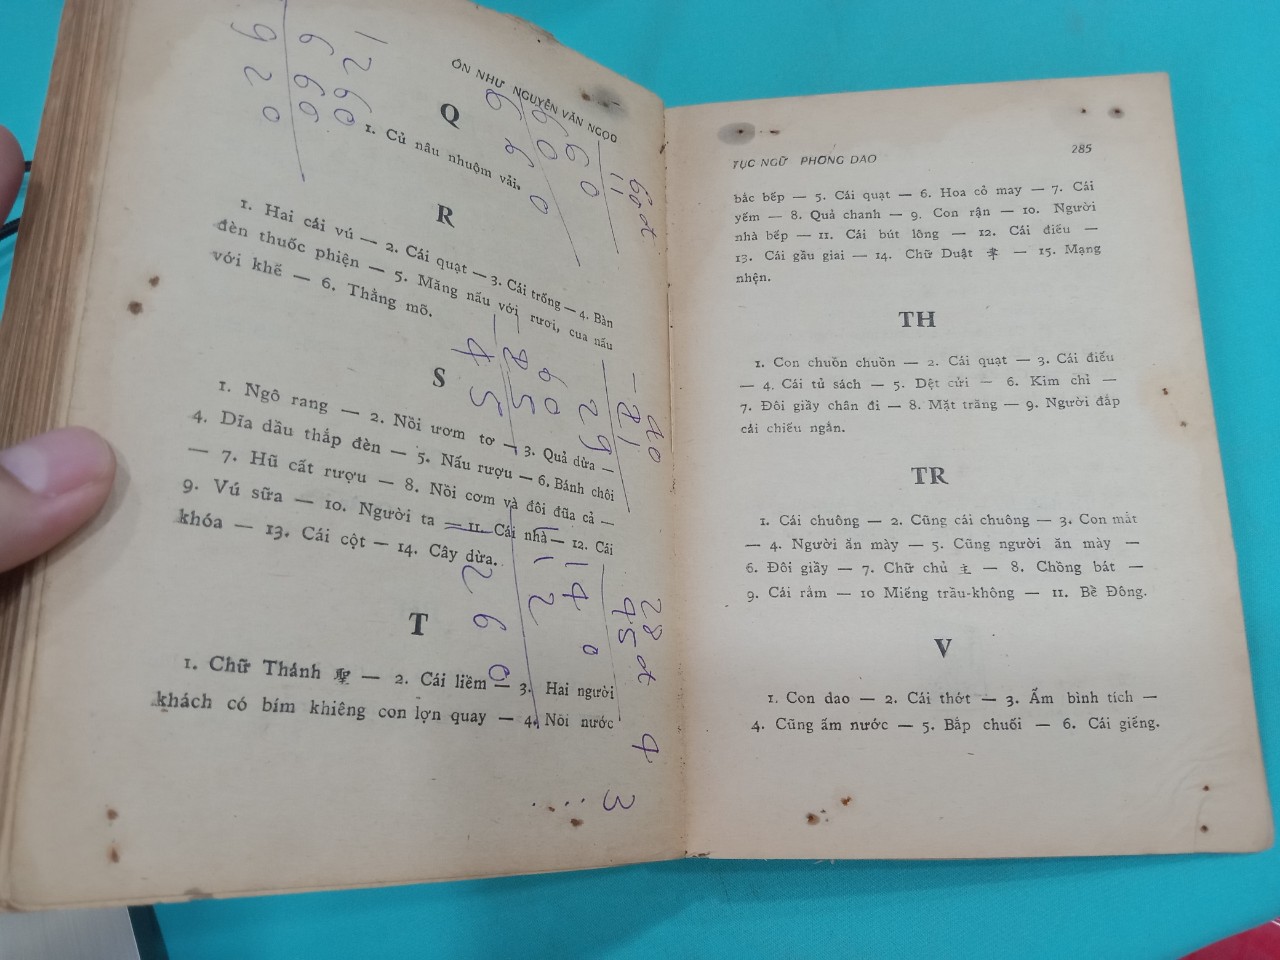 ÔN NHƯ NGUYỄN VĂN NGỌC
Q
1. Củ nâu nhuộm vải.
R
1. Hai cái vú — 2. Cái quạt — 3. Cái trống — 4. Bàn
đèn thuốc phiện — 5. Măng nấu với rươi, cua nấu
với khế — 6. Thằng mõ.
S
1. Ngô rang — 2. Nồi ươm tơ — 3. Quả dừa —
4. Dĩa dầu thắp đèn — 5. Nấu rượu — 6. Bánh chôi
— 7. Hũ cất rượu — 8. Nồi cơm và đôi đũa cả —
9. Vú sữa — 10. Người ta — 11. Cái nhà — 12. Cái
khóa — 13. Cái cột — 14. Cây dừa.
T
1. Chữ Thánh 聖 — 2. Cái liềm — 3. Hai người
khách có bím khiêng con lợn quay — 4. Nồi nước
TỤC NGỮ PHONG DAO
285
bắc bếp — 5. Cái quạt — 6. Hoa cỏ may — 7. Cái
yếm — 8. Quả chanh — 9. Con rận — 10. Người
nhà bếp — 11. Cái bút lông — 12. Cái điếu —
13. Cái gầu giai — 14. Chữ Duật 聿 — 15. Mạng
nhện.
TH
1. Con chuồn chuồn — 2. Cái quạt — 3. Cái điếu
— 4. Cái tủ sách — 5. Dệt cửi — 6. Kim chỉ —
7. Đôi giầy chân đi — 8. Mặt trăng — 9. Người đắp
cái chiếu ngắn.
TR
1. Cái chuông — 2. Cũng cái chuông — 3. Con mắt
— 4. Người ăn mày — 5. Cũng người ăn mày —
6. Đôi giầy — 7. Chữ chủ 主 — 8. Chồng bát —
9. Cái rắm — 10 Miếng trầu-không — 11. Bề Đông.
V
1. Con dao — 2. Cái thớt — 3. Ấm bình tích —
4. Cũng ấm nước — 5. Bắp chuối — 6. Cái giếng.
1260
660
920
660
660
60
11
60đt
45
285
60
29
81
40
260
112
140
28
45đt
4
3